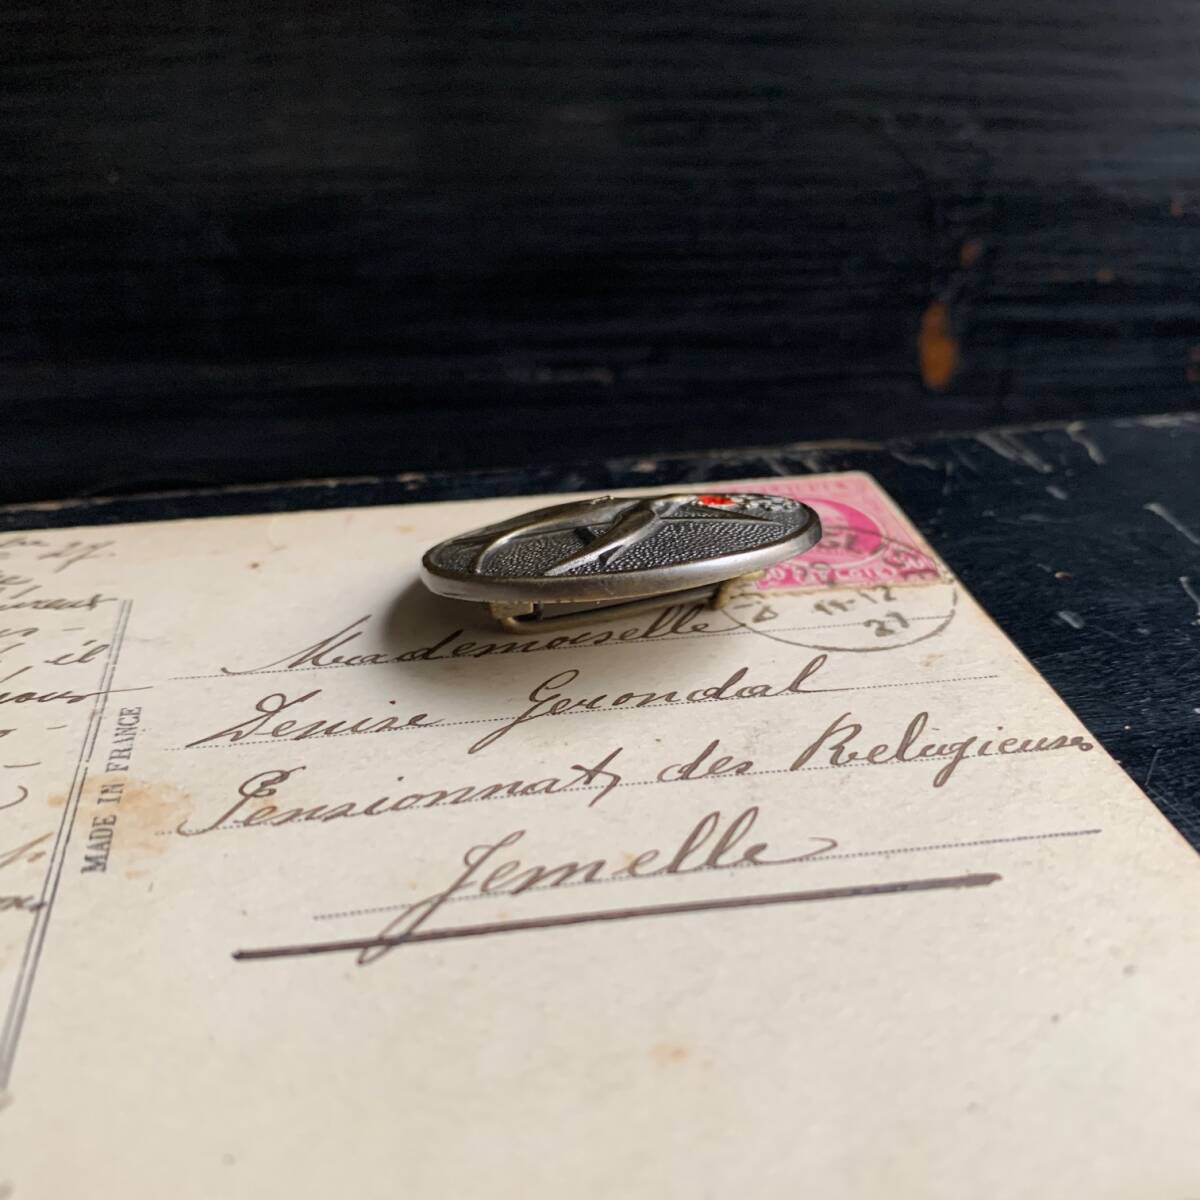 27
il
MADE IN FRANCE
11-12
27
Mademoiselle
Denise Gerondal
Pensionnat des Religieuses
Jemelle